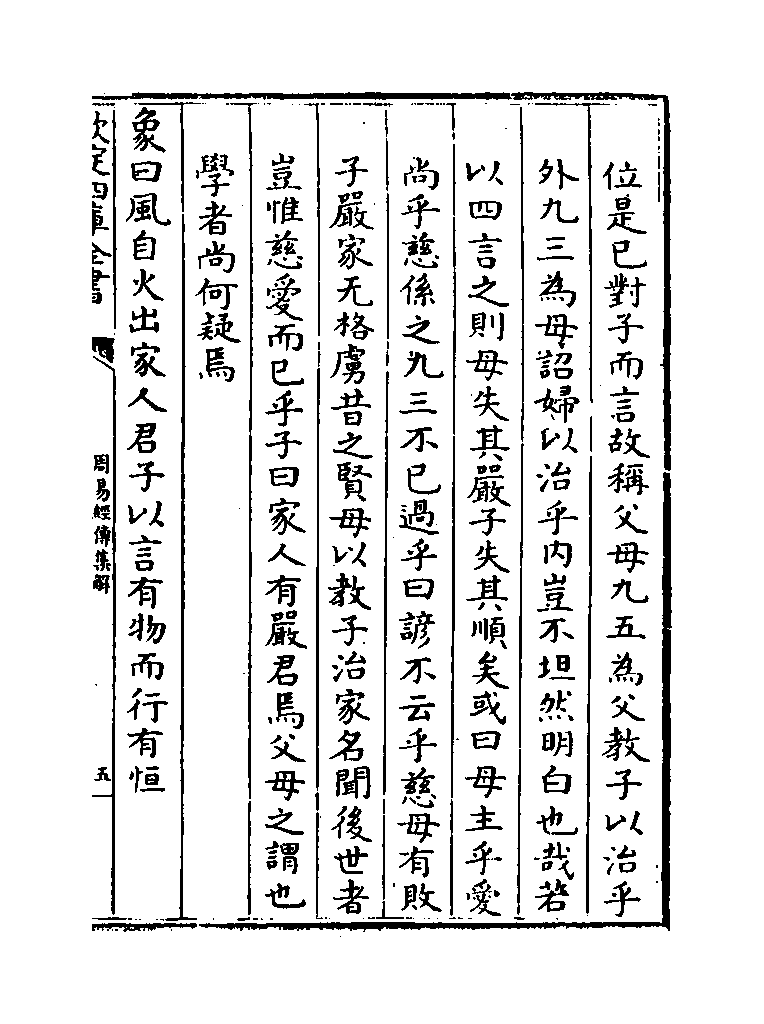 位是已對子而言故稱父母九五為父教子以治乎
外九三為母詔婦以治乎内豈不坦然明白也哉若
以四言之則母失其嚴子失其順矣或曰母主乎愛
尚乎慈係之九三不已過乎曰諺不云乎慈母有敗
子嚴家无格虜昔之賢母以教子治家名聞後世者
豈惟慈愛而已乎子曰家人有嚴君焉父母之謂也
學者尚何疑焉
象曰風自火出家人君子以言有物而行有恒
欽定四庫全書
周易經傳集解
五